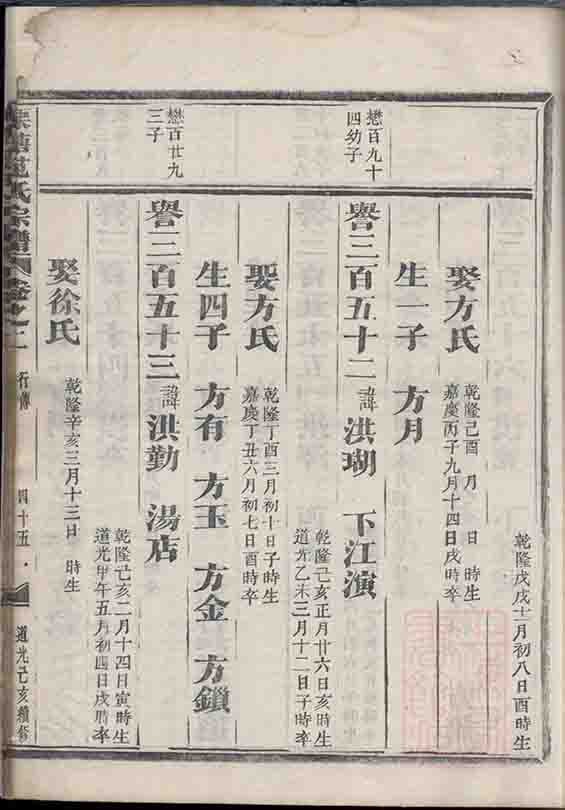 乾隆戊戌十二月初八日酉時生
娶方氏
乾隆己酉 月 日 時生
嘉慶丙子九月十四日戌時卒
生一子 方月
懋百九十
四幼子
譽三百五十二 諱 洪瑚 下江演
乾隆己亥正月廿六日亥時生
道光乙未三月十二日子時卒
娶方氏
乾隆丁酉三月初十日子時生
嘉慶丁丑六月初七日酉時卒
生四子 方有 方玉 方金 方鎖
懋百廿九
三子
譽三百五十三 諱 洪勤 湯店
乾隆己亥二月十四日寅時生
道光甲午五月初四日戌時卒
娶徐氏
乾隆辛亥三月十三日 時生
氏宗譜 卷之一 行傳 四十五 道光己亥續修